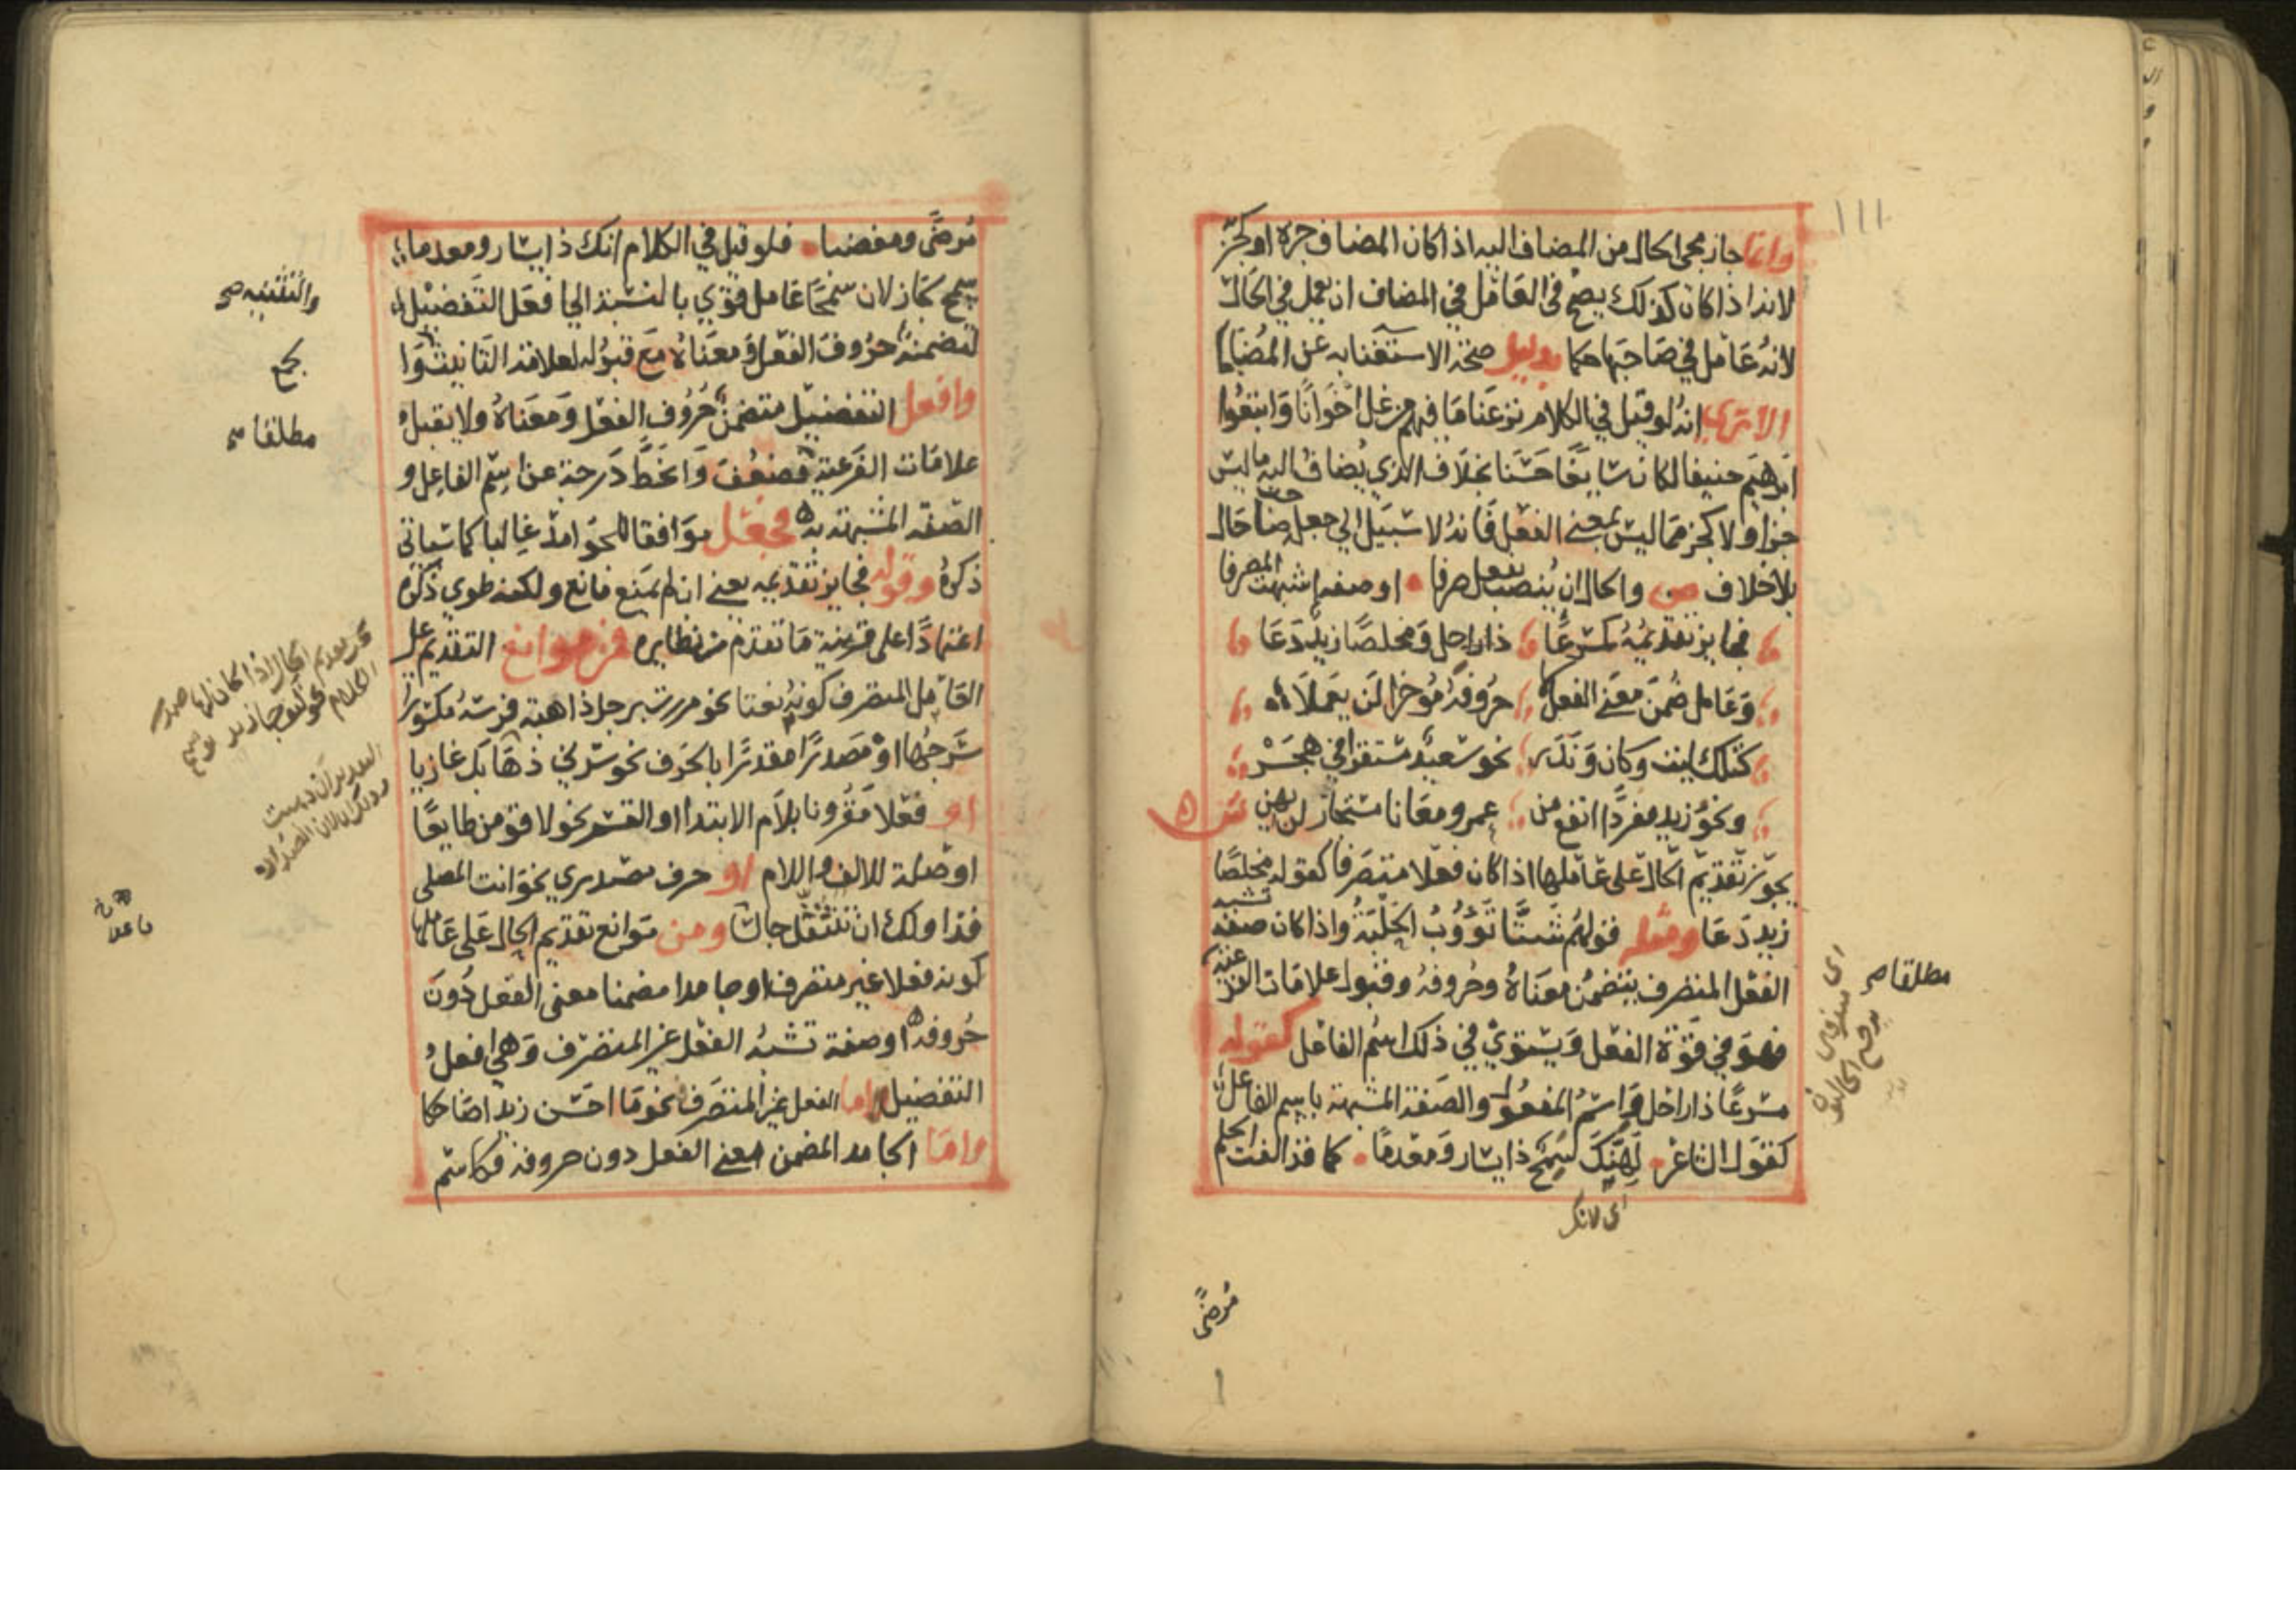 ١١١
وانما جاز مجى الحال من المضاف اليه اذا كان المضاف جزه او كجز
لانه اذا كان كذلك يصح فى العامل في المضاف ان يعمل في الحال
لانه عامل في صاحبها حكما بدليل صحة الاستغنا به عن المضاف
الا ترى انه لو قيل في الكلام نزعنا ما فيهم من غل اخوانا واتبعوا
ابرهيم حنيفا لكان سايغا حسنا بخلاف الذي يضاف اليه ما ليس
جزا ولا كجز مما ليس بمعنى الفعل فانه لا سبيل الي جعل صاحب حال
بلا خلاف ص والحال ان ينصب بفعل صرفا او صفه اشبهت المصرفا
فجايز تقديمه كمسرعا ذا راحل ومخلصا زيد دعا
وعامل ضمن معنى الفعل لا حروفه مؤخرا لن يعملا
كتلك ليت وكان وندر نحو سعيد مستقرا في هجر
ونحو زيد مفردا انفع من عمرو معانا مستجاز لن يهن ش
يجوز تقديم الحال على عاملها اذا كان فعلا متصرفا كقوله مخلصا
زيد دعا ومثله قولهم شتا تؤوب الحلبة واذا كان صفة تشبه
الفعل المتصرف بتضمن معناه وحروفه وقبول علامات الفرعيه
فهو في قوة الفعل ويستوي في ذلك اسم الفاعل كقوله
مسرعا ذا راحل واسم المفعول والصفة المشبهة باسم الفاعل
كقول الشاعر لهنك سمح ذا يسار ومعدما كما قد الفت الحلم
مطلقا صح
اى لانك
مرضى
مرضى ومغضبا فلو قيل في الكلام انك ذا يسار ومعدما
سمح لجاز لان سمحا عامل قوي بالنسبة الي افعل التفضيل
لتضمنه حروف الفعل ومعناه مع قبوله لعلامة التانيث وا
وافعل التفضيل متضمن حروف الفعل ومعناه ولا يقبل
علامات الفرعية فضعف وانحط درجة عن اسم الفاعل و
الصفه المشبهة به فجعل موافقا للجوامد غالبا كما سياتي
ذكره وقوله فجايز تقديمه يعني ان لم يمنع مانع ولكنه طوي ذكره
اعتمادا على قرينة ما تقدم من نظايره فمن موانع التقديم على
العامل المتصرف كونه نعتا نحو مررت برجل ذاهبة فرسه مكسورا
سرجها او مصدرا مقدرا بالحرف نحو سرني ذهابك غازيا
او فعلا مقرونا بلام الابتدا او القسم نحو لاقومن طايعا
او صلة للالف واللام او حرف مصدري نحو انت المصلي
فذا ولك ان تتنفل جالسا ومن موانع تقديم الحال على عاملها
كونه فعلا غير متصرف او جامدا مضمنا معنى الفعل دون
حروفه او صفة تشبه الفعل غير المتصرف وهي افعل
التفضيل اما الفعل غير المتصرف نحو ما احسن زيدا ضاحكا
واما الجامد المضمن معنى الفعل دون حروفه فكاسم
والتثنيه صح
مطلقا صح